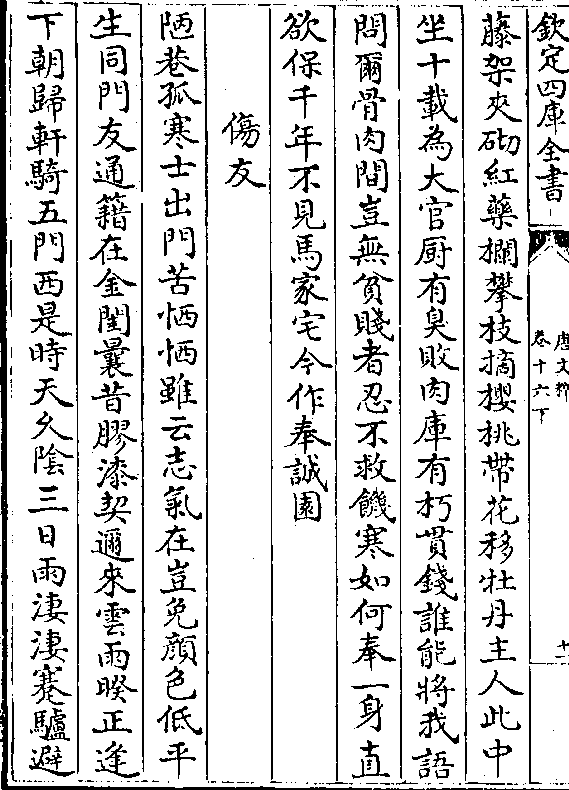 欽定四庫全書
唐文粹
卷十六下
十一
藤架夾砌紅藥欄攀枝摘櫻桃帶花移牡丹主人此中
坐十載為大官厨有臭敗肉庫有朽貫錢誰能將我語
問爾骨肉間豈無貧賤者忍不救饑寒如何奉一身直
欲保千年不見馬家宅今作奉誠園
傷友
陋巷孤寒士出門苦恓恓雖云志氣在豈免顔色低平
生同門友通籍在金閨曩昔膠漆契邇來雲雨暌正逢
下朝歸軒騎五門西是時天久陰三日雨淒淒蹇驢避